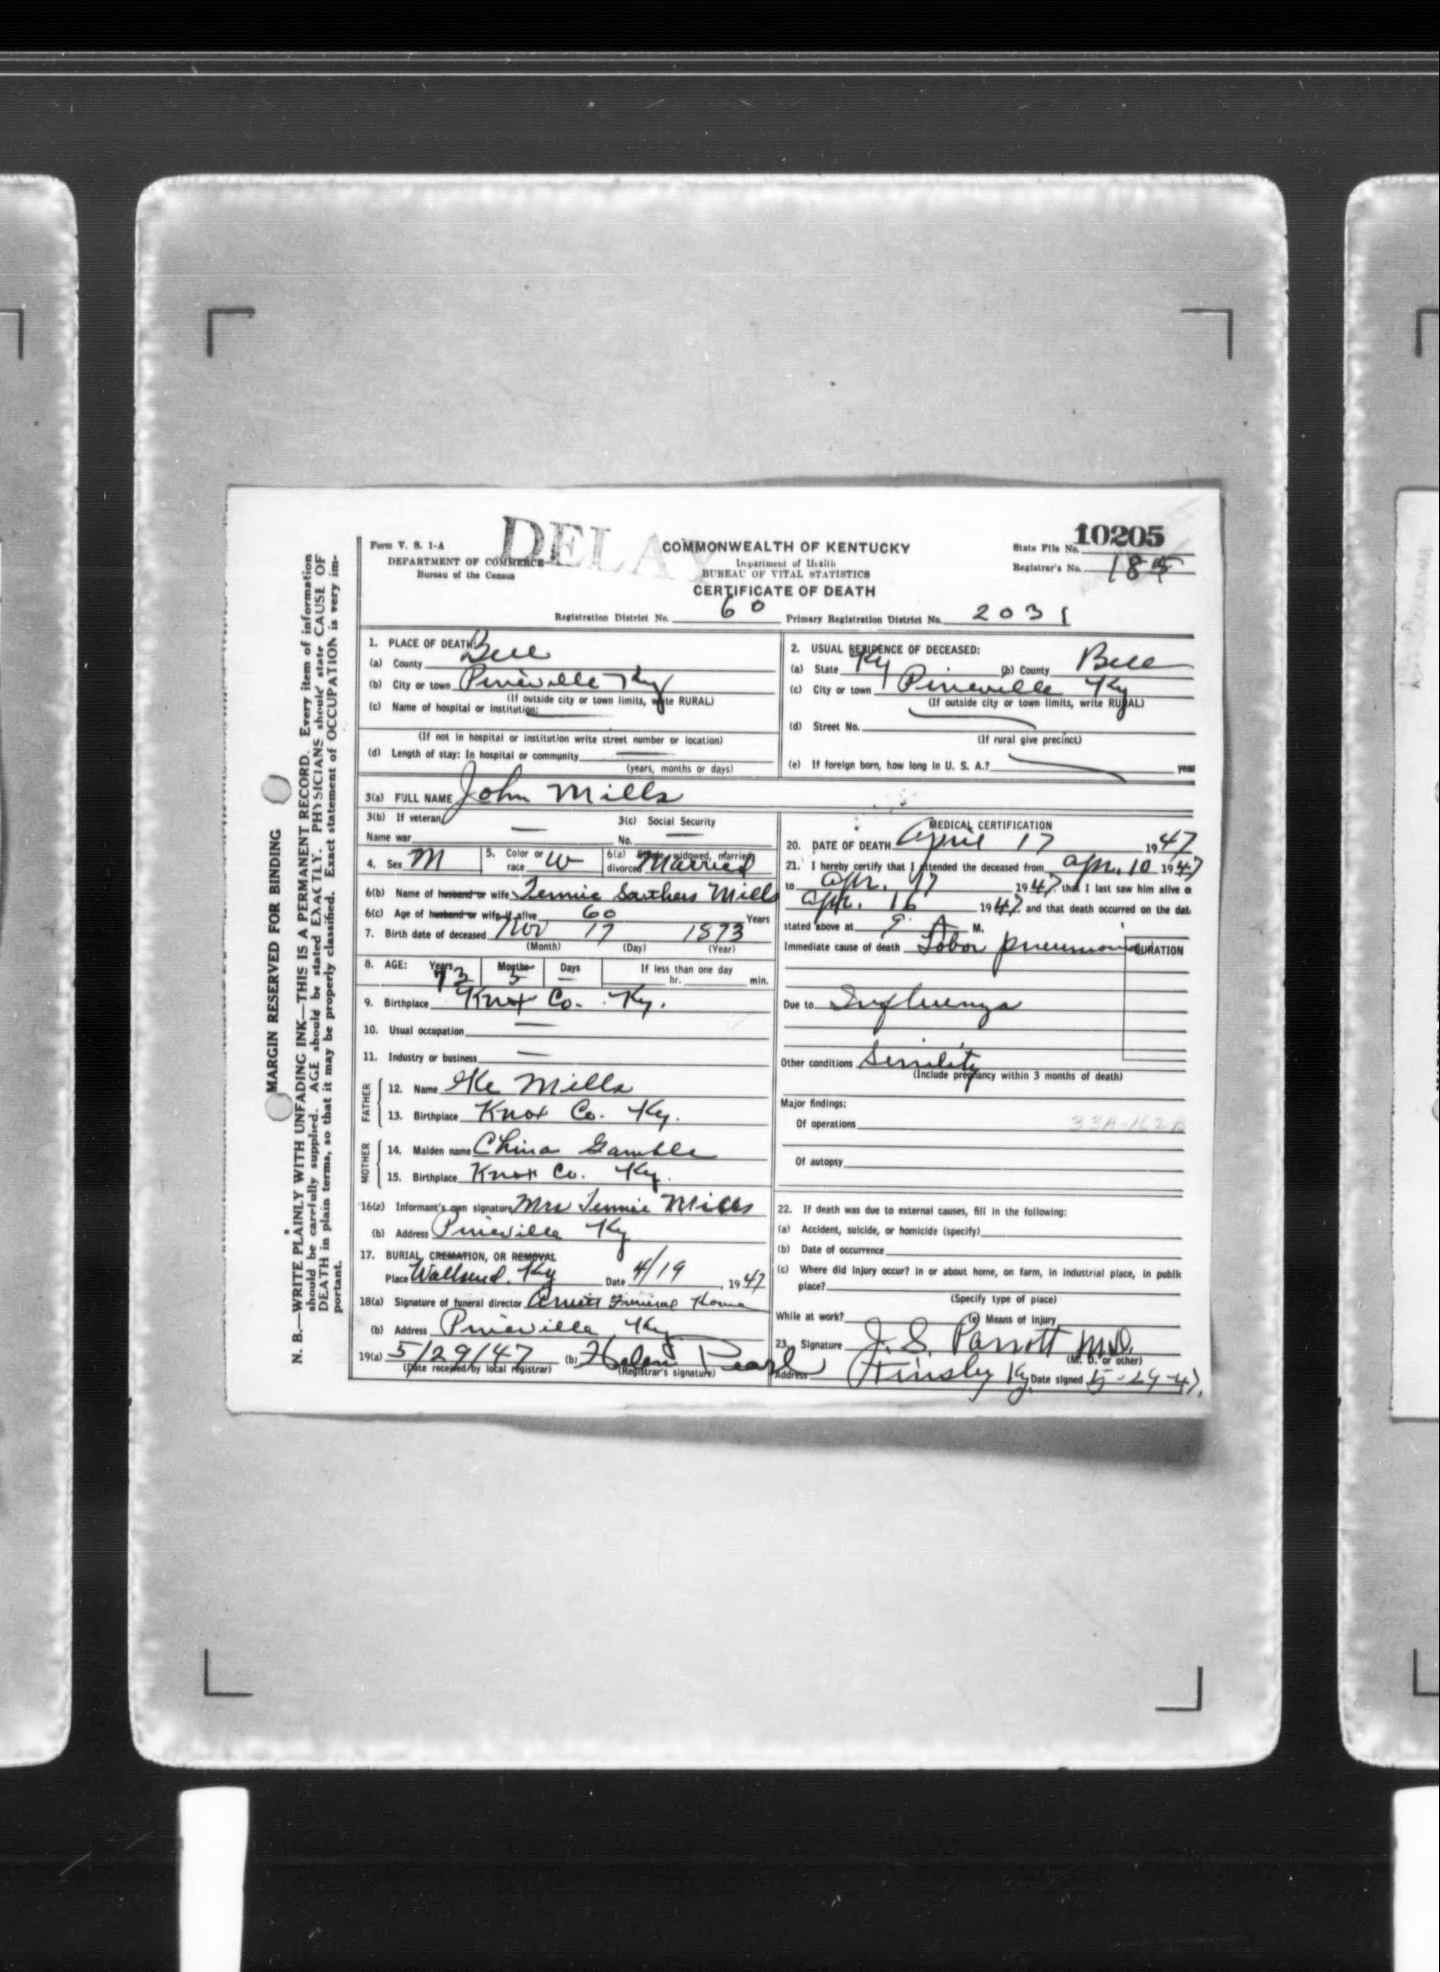 DELAY
Form V. S. 1-A
DEPARTMENT OF COMMERCE
Bureau of the Census
COMMONWEALTH OF KENTUCKY
Department of Health
BUREAU OF VITAL STATISTICS
CERTIFICATE OF DEATH
State File No. 10205
Registrar's No. 185
Registration District No. 60 Primary Registration District No. 2031
MARGIN RESERVED FOR BINDING
N. B.—WRITE PLAINLY WITH UNFADING INK—THIS IS A PERMANENT RECORD. Every item of information
should be carefully supplied. AGE should be stated EXACTLY. PHYSICIANS should state CAUSE OF
DEATH in plain terms, so that it may be properly classified. Exact statement of OCCUPATION is very im-
portant.
1. PLACE OF DEATH:
(a) County Bell
(b) City or town Pineville Ky
(If outside city or town limits, write RURAL)
(c) Name of hospital or institution:
(If not in hospital or institution write street number or location)
(d) Length of stay: In hospital or community
(years, months or days)
2. USUAL RESIDENCE OF DECEASED:
(a) State Ky (b) County Bell
(c) City or town Pineville Ky
(If outside city or town limits, write RURAL)
(d) Street No.
(If rural give precinct)
(e) If foreign born, how long in U. S. A.? year
3(a) FULL NAME John Mills
3(b) If veteran,
Name war
3(c) Social Security
No.
4. Sex M 5. Color or race W 6(a) Single, widowed, married, divorced Married
6(b) Name of husband or wife Jennie Southers Mills
6(c) Age of husband or wife if alive 60 Years
7. Birth date of deceased Nov 17 1873
(Month) (Day) (Year)
8. AGE: Years 73 Months 5 Days — If less than one day
hr. min.
9. Birthplace Knox Co. Ky.
10. Usual occupation —
11. Industry or business —
FATHER
12. Name Ike Mills
13. Birthplace Knox Co. Ky.
MOTHER
14. Maiden name China Gamble
15. Birthplace Knox Co. Ky.
16(a) Informant's own signature Mrs Jennie Mills
(b) Address Pineville Ky
17. BURIAL, CREMATION, OR REMOVAL
Place Wallsend, Ky Date 4/19, 1947
18(a) Signature of funeral director Arnett Funeral Home
(b) Address Pineville, Ky
19(a) 5/29/47 (b) Helen Pearl
(Date received by local registrar) (Registrar's signature)
MEDICAL CERTIFICATION
20. DATE OF DEATH April 17 1947
21. I hereby certify that I attended the deceased from Apr. 10 1947
to Apr. 17 1947 that I last saw him alive o
Apr. 16 1947 and that death occurred on the dat
stated above at 9 A M.
Immediate cause of death Lobor pneumonia DURATION
Due to Influenza
Other conditions Senility
(Include pregnancy within 3 months of death)
Major findings:
Of operations
Of autopsy
22. If death was due to external causes, fill in the following:
(a) Accident, suicide, or homicide (specify)
(b) Date of occurrence
(c) Where did injury occur? In or about home, on farm, in industrial place, in public
place?
(Specify type of place)
While at work? (e) Means of injury
23. Signature J. S. Parrott M.D.
(M. D. or other)
Address Tinsley Ky Date signed 5-29-47.